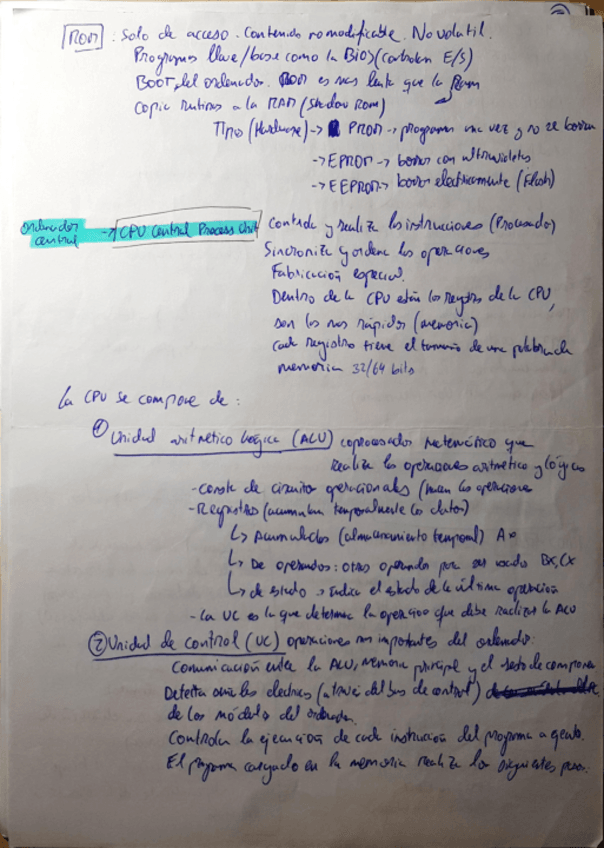 ROM : Solo de acceso. Contenido no modificable. No volatil.
Programas llave/base como la BIOS (controlan E/S)
BOOT del ordenador. ROM es mas lenta que la Ram
Copia rutinas a la RAM (Shadow Rom)
Tipos (Hardware) -> PROM -> programa una vez y no se borran
-> EPROM -> borran con ultravioletas
-> EEPROM -> borran electricamente (Flash)
ordenador central -> CPU Central Process Unit
Controla y realiza las instrucciones (Procesador)
Sincroniza y ordena las operaciones
Fabricación especial.
Dentro de la CPU están los registros de la CPU,
son los mas rápidos (memoria)
cada registro tiene el tamaño de una palabra de
memoria 32/64 bits
La CPU se compone de :
① Unidad aritmetico lógica (ALU) coprocesador matemático que
realiza las operaciones aritmetico y lógicas
- Consta de circuitos operacionales (hacen las operaciones
- Registros (acumulan temporalmente los datos)
↳ Acumulador (almacenamiento temporal) Ax
↳ De operandos : otros operandos para ser usados BX, CX
↳ de estado -> Indica el estado de la última operación
- La UC es la que determina la operación que debe realizar la ALU
② Unidad de control (UC) operaciones mas importantes del ordenador:
Comunicación entre la ALU, memoria principal y el resto de
Detecta señales electricas (a través del bus de control)
de los módulos del ordenador.
Controlan la ejecución de cada instrucción del programa
El programa cargado en la memoria realiza los siguientes pasos: